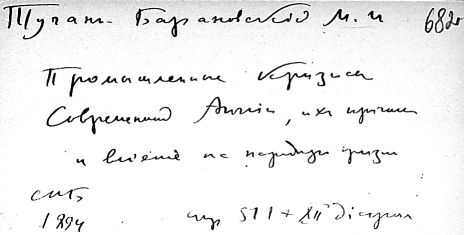 Туган-Барановский М. И 682
Промышленные кризисы
Современной Англии, их причины
и влияние на народную жизнь
СПБ
1894 стр 511 + XII